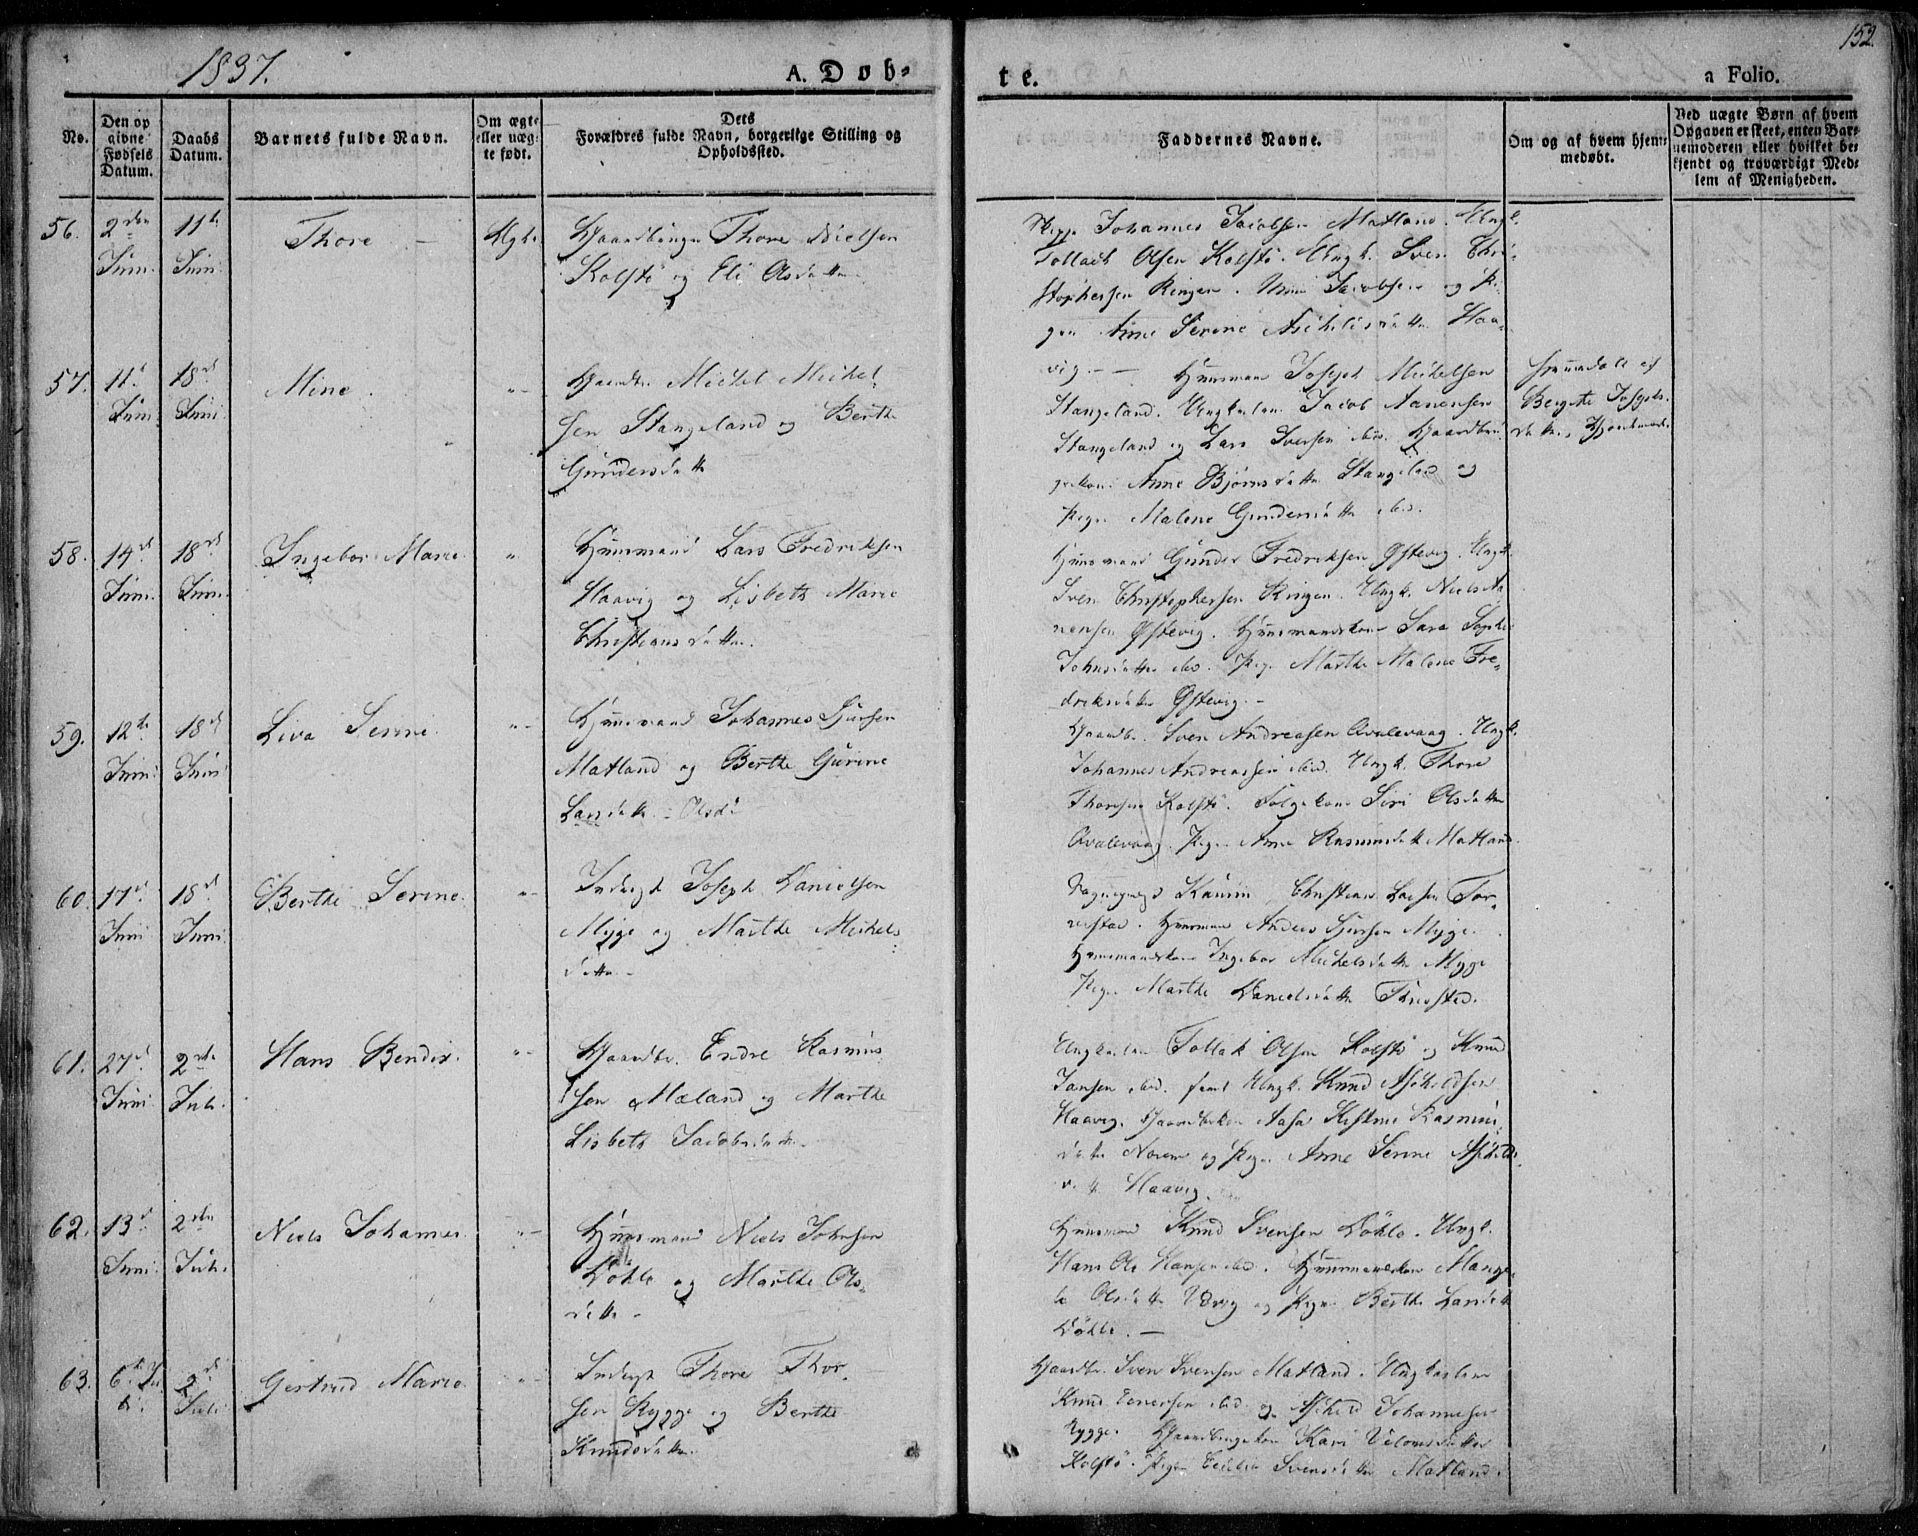 1837.
A. Døb-
te.
a Folio.
152
No.
Den op
givne
Fødsels
Datum.
Daabs
Datum.
Barnets fulde Navn.
Om ægte
eller uæg-
te født.
Dets
Forældres fulde Navn, borgerlige Stilling og
Opholdssted.
Faddernes Navne.
Om og af hvem hjem-
medøbt.
Ved uægte Børn af hvem
Opgaven er skeet, enten Bar-
nemoderen eller hvilket be-
kjendt og troværdigt Med-
lem af Menigheden.
56.
2den
Juni
11te
Juni
Thore
Ægte
Gaardbruger Thore Nielsen
Kolstö og Eli Olsdatter
Johannes Jacobsen Matland. Ungk.
Tollack Olsen Kolstö. Ungk. Sven Chri-
stophersen Ringen. Jacobsen og Pi-
gen Anne Serine Aschilisdatter Haa-
vig
57.
11te
Juni
18de
Juni
Mine
Gaardbr. Michel Michel-
sen Stangeland og Berthe
Gundersdatter
Huusmand Joseph Michelsen
Stangeland. Ungkarlen Jacob Aanensen
Stangeland og Lars Iversen ibid. Gaardbru-
gerkone Anne Bjørnsdatter Stangeland og
Pigen Malene Gundersdatter ibid.
Hjemmedøbt af
Bergete Josephs-
datter, Gjordemoder
58.
14de
Juni
18de
Juni
Ingebor Marie
Huusmand Lars Fredriksen
Haavig og Lisbeth Marie
Christiansdatter
Huusmand Gunder Fredriksen Østevig. Ungk.
Sven Christophersen Ringen. Ungk. Niels Aa-
nensen Østevig. Huusmandskone Sara Sophie
Johnsdatter ibid. Pige Marthe Malene Fre-
driksdatter Østevig.
59.
12te
Juni
18de
Juni
Liva Serine
Huusmand Johannes Sjursen
Matland og Berthe Gurine
Larsdatter Olsd.
Gaardbr. Sven Andreasen Qvalevaag. Ungk.
Johannes Andreassen ibid. Ungk. Thore
Thoresen Kolstö. Følgekone Siri Olsdatter
Qvalevaag. Pige Anne Rasmusdatter Matland.
60.
17de
Juni
18de
Juni
Berthe Serine
Inderst Joseph Danielsen
Mygge og Marthe Michels-
datter
Christian Larsen Tor-
vestad. Huusmand Anders Sjursen Mygge.
Huusmandskone Ingebor Michelsdatter Mygge
Pige Marthe Danielsdatter
61.
27de
Juni
2den
Juli
Hans Bendix
Gaardbr. Endre Rasmus-
sen Mæland og Marthe
Lisbeth Jacobsdatter
Ungkarlen Tollak Olsen Kolstö og Knud
Jansen ibid. samt Ungk. Knud Aschildsen
Haavig. Gaardbrkone Aasa Kistine Rasmus-
datter Norem og Pige Anne Serine Aschilds-
datter Haavig.
62.
13de
Juni
2den
Juli
Niels Johannes
Huusmand Niels Johnsen
Döhle og Marthe Ols-
datter
Huusmand Knud Svensen Döhle. Ungk.
Hans Ole Hansen ibid. Huusmandskone Mange-
la Olsdatter og Pige Berthe Larsdatter
Döhle.
63.
6te Ju-
li
2de
Juli
Gertrud Marie
Inderst Thore Thor-
sen Rygge og Berthe
Knudsdatter
Gaardbr. Sven Svensen Matland. Ungkarlene
Knud Enersen ibid og Aschild Johannesen
Rygge. Gaardbrugerkone Kari Villomsdatter
Kolstö. Pige Cecilia Svensdatter Matland.